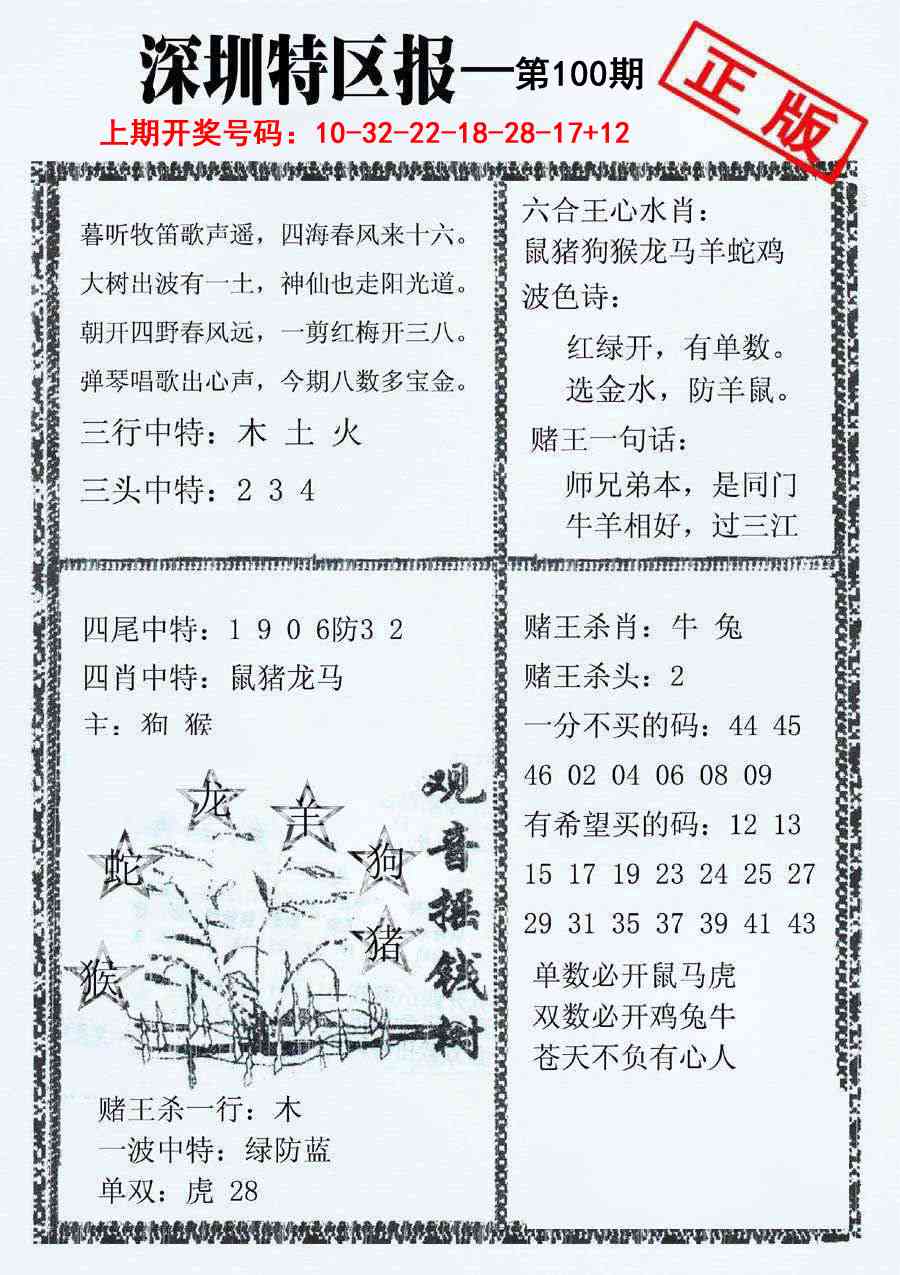 深圳特区报—第100期
正版
上期开奖号码：10-32-22-18-28-17+12
暮听牧笛歌声遥，四海春风来十六。
大树出波有一土，神仙也走阳光道。
朝开四野春风远，一剪红梅开三八。
弹琴唱歌出心声，今期八数多宝金。
三行中特：木 土 火
三头中特：2 3 4
六合王心水肖：
鼠猪狗猴龙马羊蛇鸡
波色诗：
红绿开，有单数。
选金水，防羊鼠。
赌王一句话：
师兄弟本，是同门
牛羊相好，过三江
四尾中特：1 9 0 6防3 2
四肖中特：鼠猪龙马
主：狗 猴
龙
羊
蛇
狗
猪
猴
观音摇钱树
赌王杀一行：木
一波中特：绿防蓝
单双：虎 28
赌王杀肖：牛 兔
赌王杀头：2
一分不买的码：44 45
46 02 04 06 08 09
有希望买的码：12 13
15 17 19 23 24 25 27
29 31 35 37 39 41 43
单数必开鼠马虎
双数必开鸡兔牛
苍天不负有心人